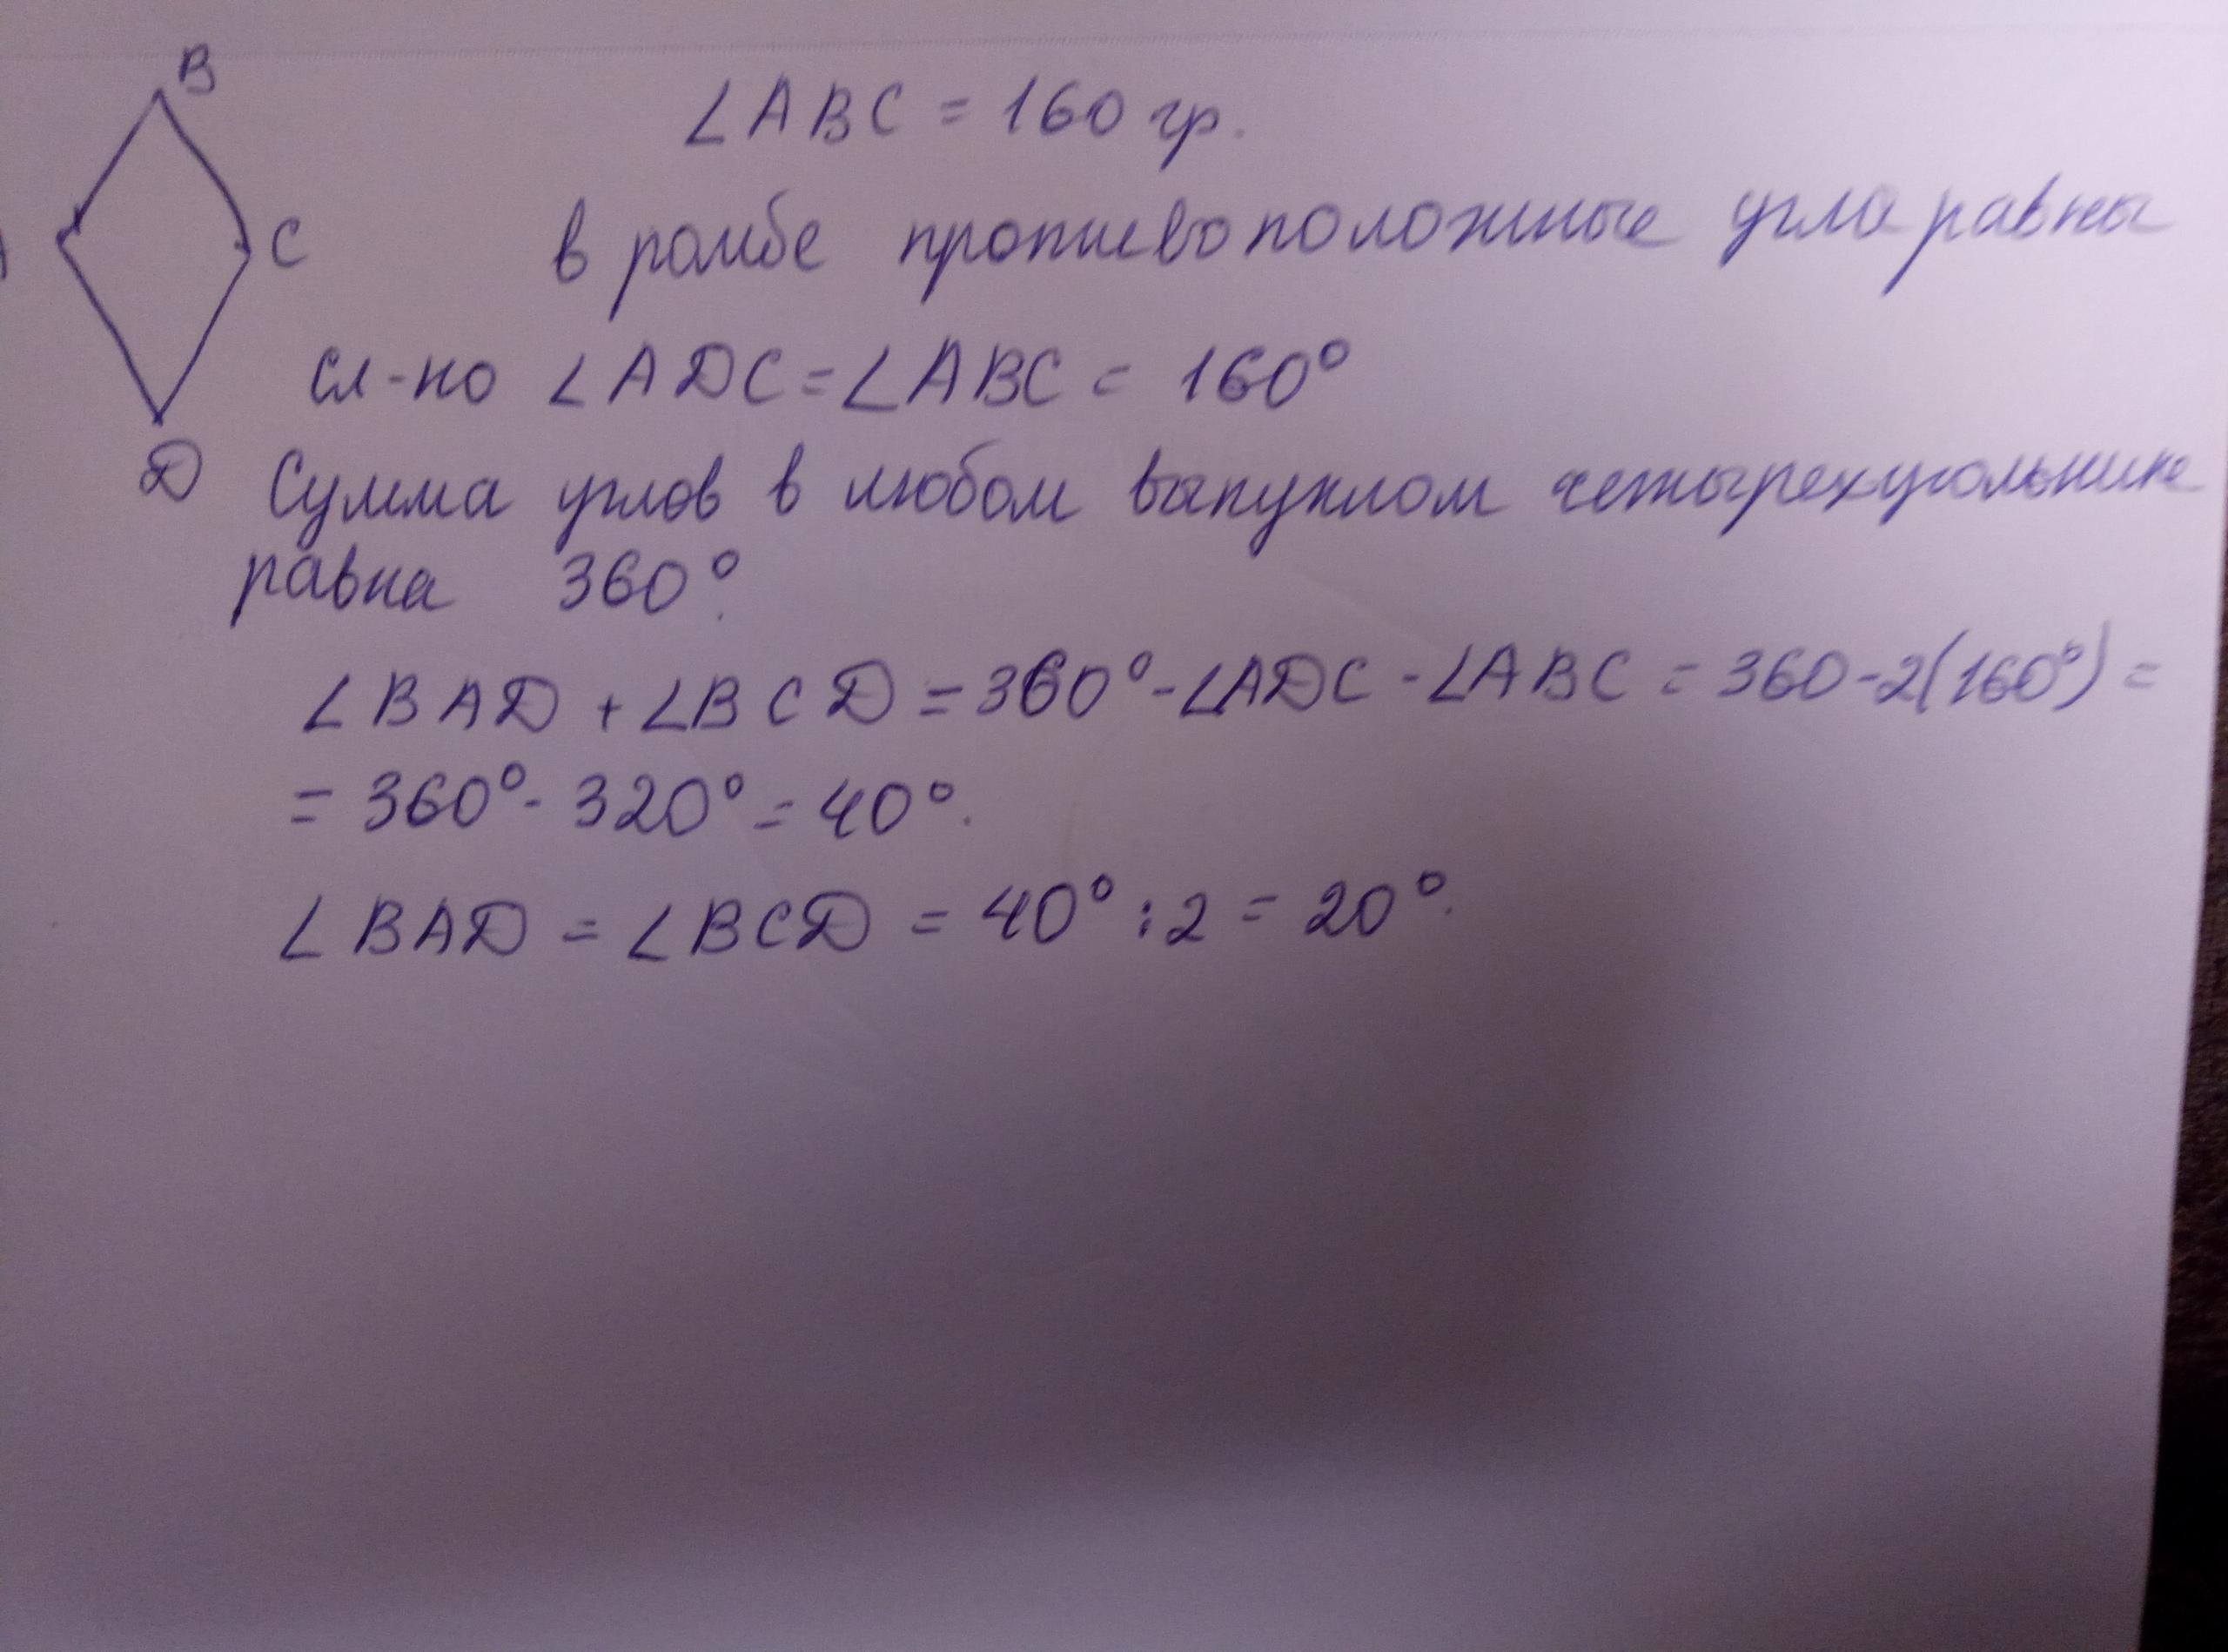 B
∠ABC = 160 гр.
A
C
в ромбе противоположные угла равны
сл-но ∠ADC = ∠ABC = 160°
D
Сумма углов в любом выпуклом четырехугольнике
равна 360°.
∠BAD + ∠BCD = 360° - ∠ADC - ∠ABC = 360 - 2(160°) =
= 360° - 320° = 40°.
∠BAD = ∠BCD = 40° : 2 = 20°.